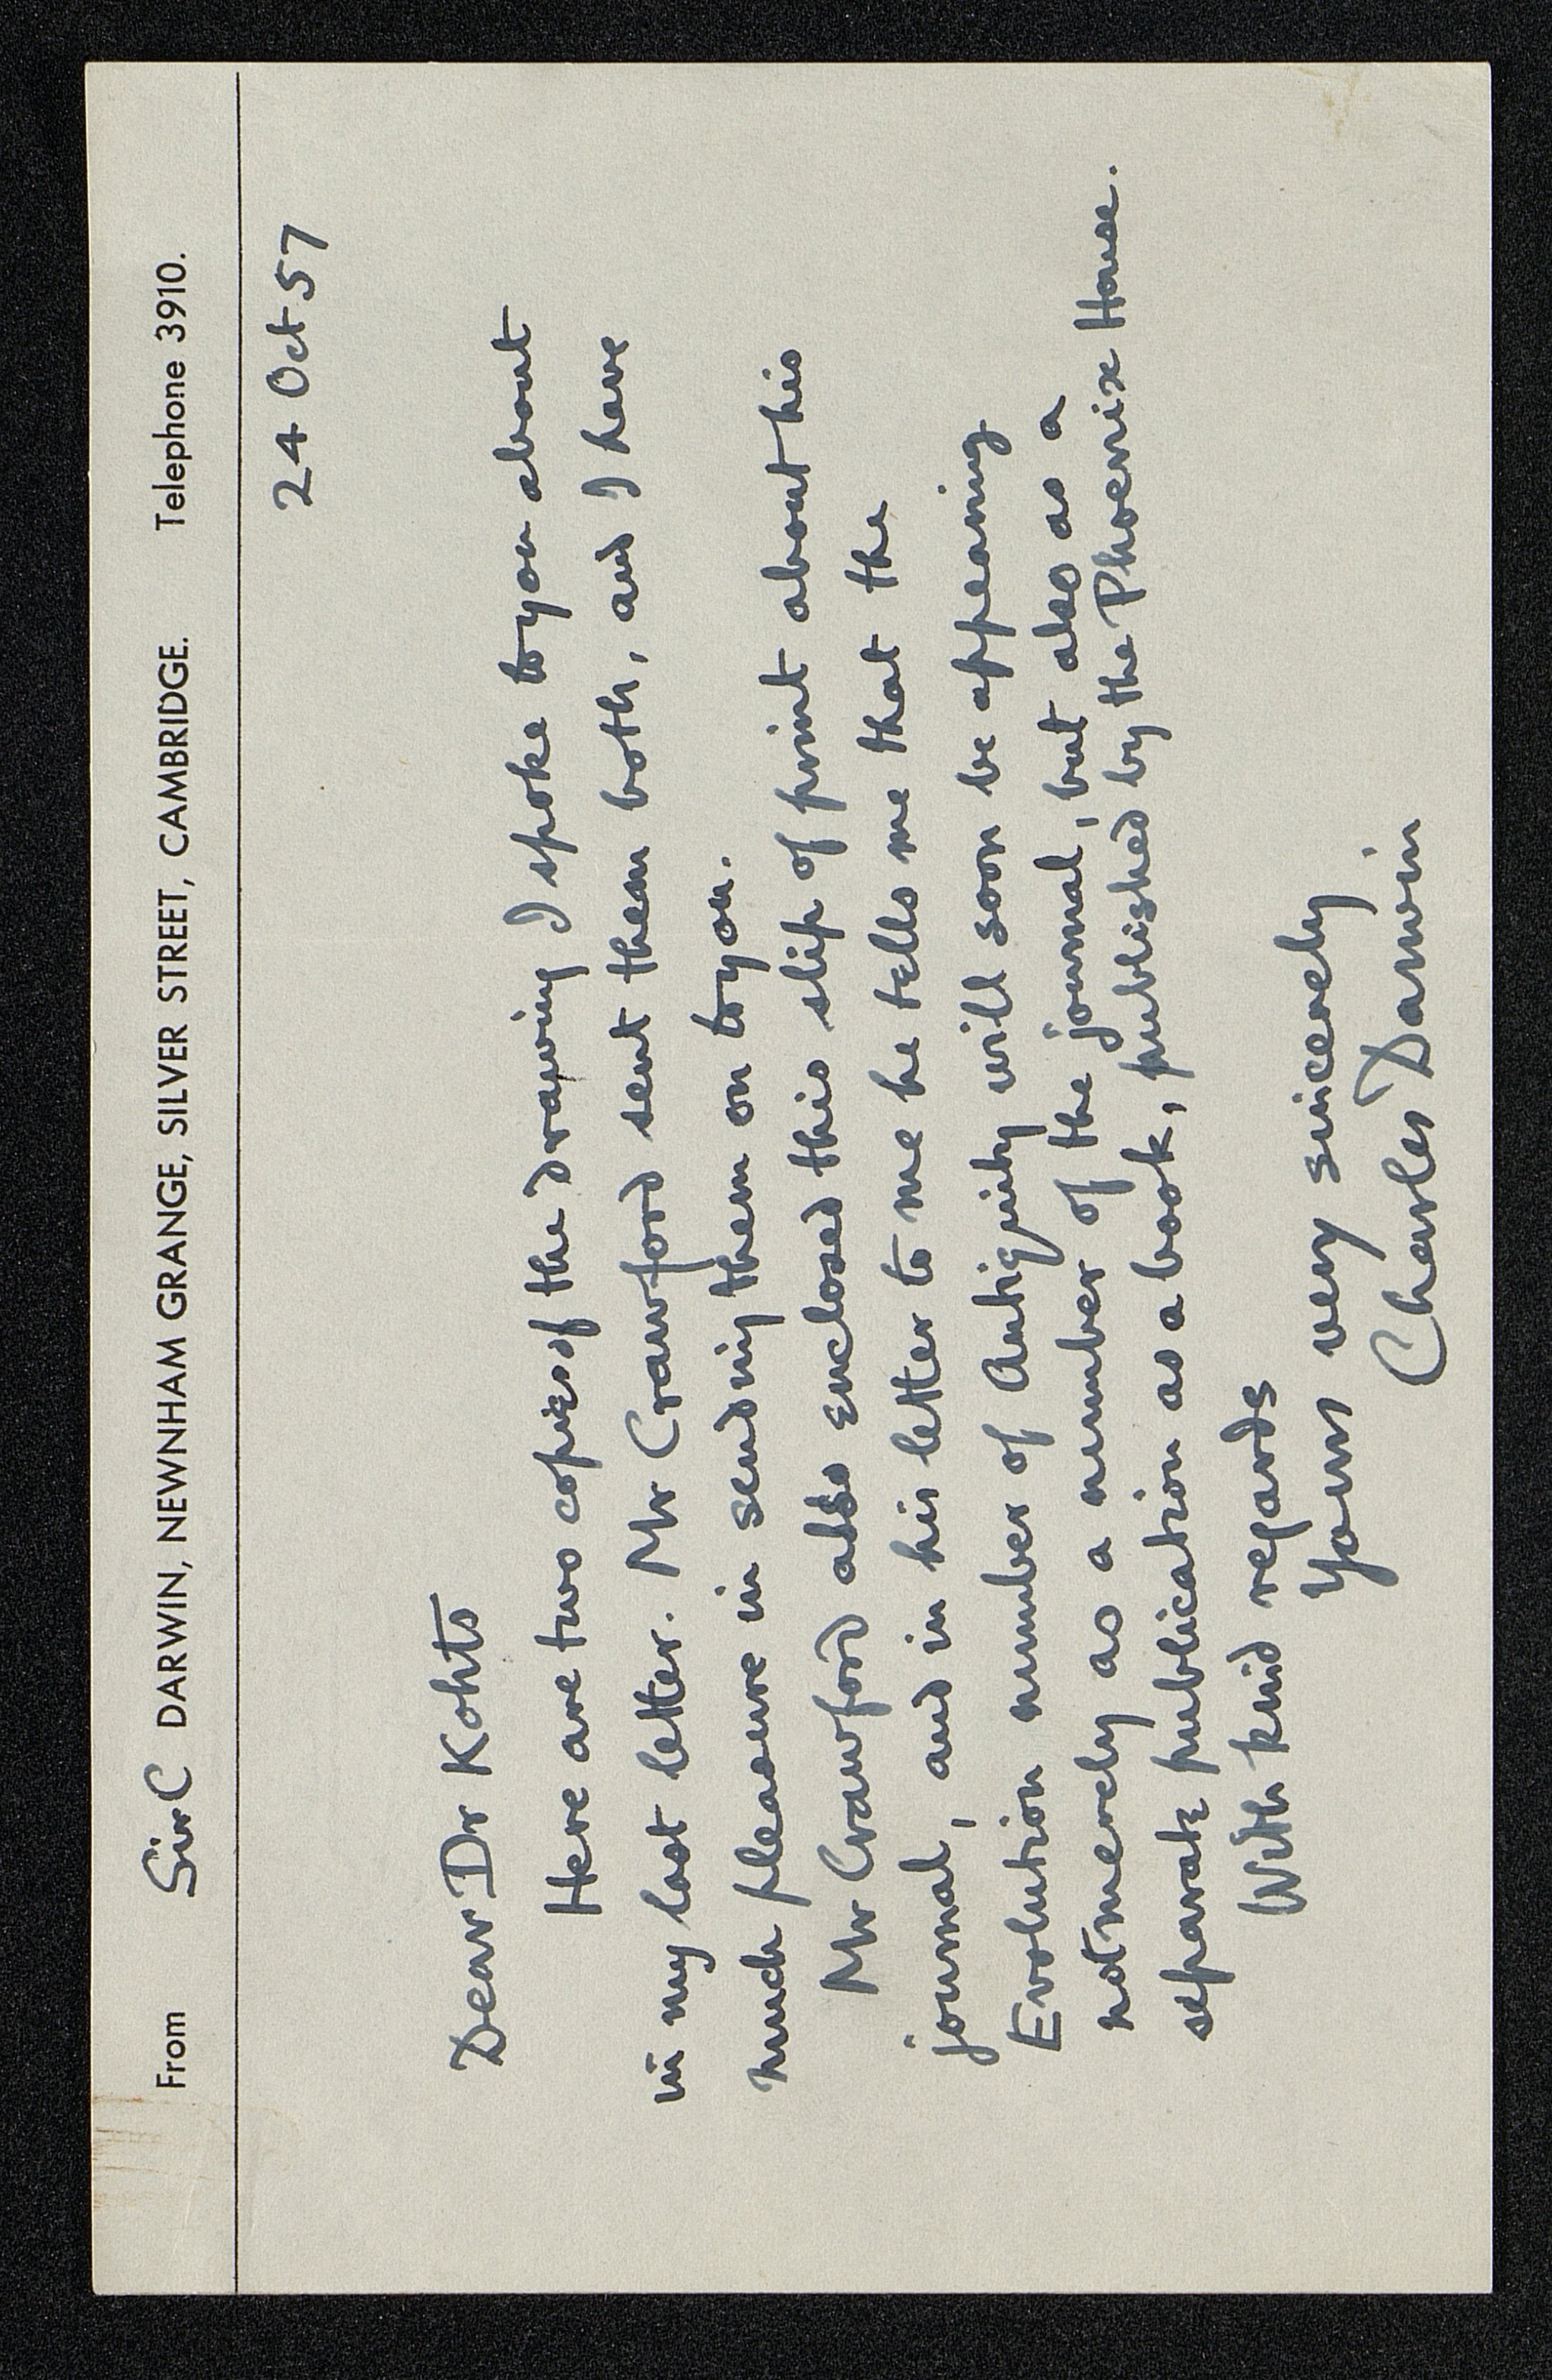 From Sir C DARWIN, NEWNHAM GRANGE, SILVER STREET, CAMBRIDGE. Telephone 3910.
24 Oct 57
Dear Dr Kohts
Here are two copies of the drawing I spoke to you about
in my last letter. Mr Crawford sent them both, and I have
much pleasure in sending them on to you.
Mr Crawford also enclosed this slip of print about his
journal, and in his letter to me he tells me that the
Evolution number of Antiquity will soon be appearing
not merely as a number of the journal, but also as a
separate publication as a book, published by the Phoenix House.
With kind regards
Yours very sincerely
Charles Darwin